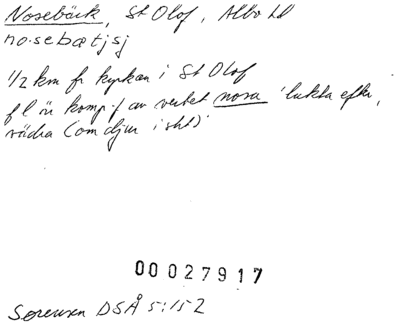 Nosebäck, St Olof, Albo hd
no·sebætjsj
1/2 km fr kyrkan i St Olof
fl är komp. av verbet nosa 'lukta efter,
vädra (om djur i sht)'
00027917
Sørensen DSÅ 5:152